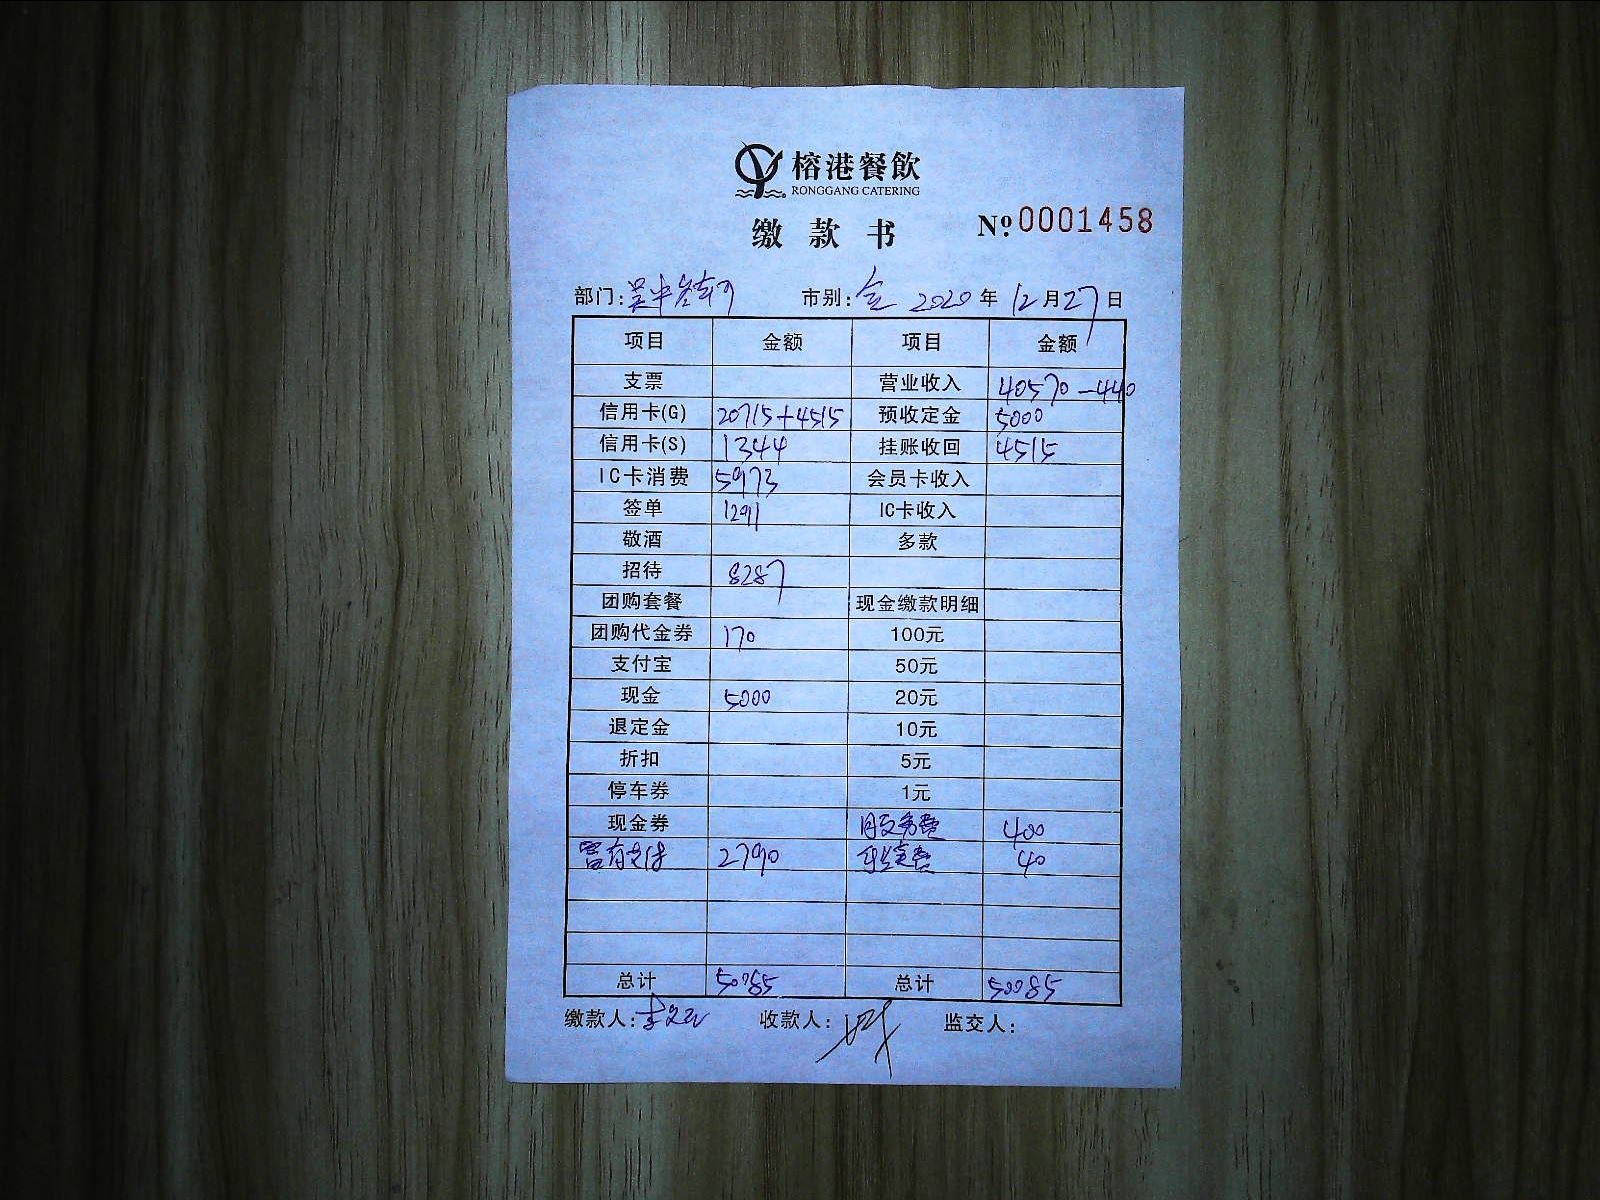 榕港餐飲
RONGGANG CATERING
缴款书 №0001458
部门: 市别:全 2020年12月27日
项目 金额 项目 金额
支票 营业收入 40570-440
信用卡(G) 20715+4515 预收定金 5000
信用卡(S) 1344 挂账收回 4515
IC卡消费 5973 会员卡收入
签单 1291 IC卡收入
敬酒 多款
招待 8287
团购套餐 现金缴款明细
团购代金券 170 100元
支付宝 50元
现金 5000 20元
退定金 10元
折扣 5元
停车券 1元
现金券 服务费 400
富有支付 2790 40
总计 50085 总计 50085
缴款人: 收款人: 监交人: